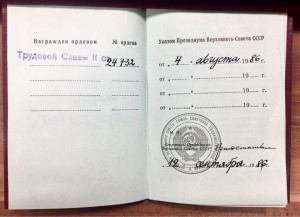 Награжден орденом № ордена
Трудовой Славы II ст. 24732
Указом Президиума Верховного Совета СССР
от 4 августа 1986 г.
от 19 г.
от 19 г.
от 19 г.
Верховного Совета СССР
12 сентября 86